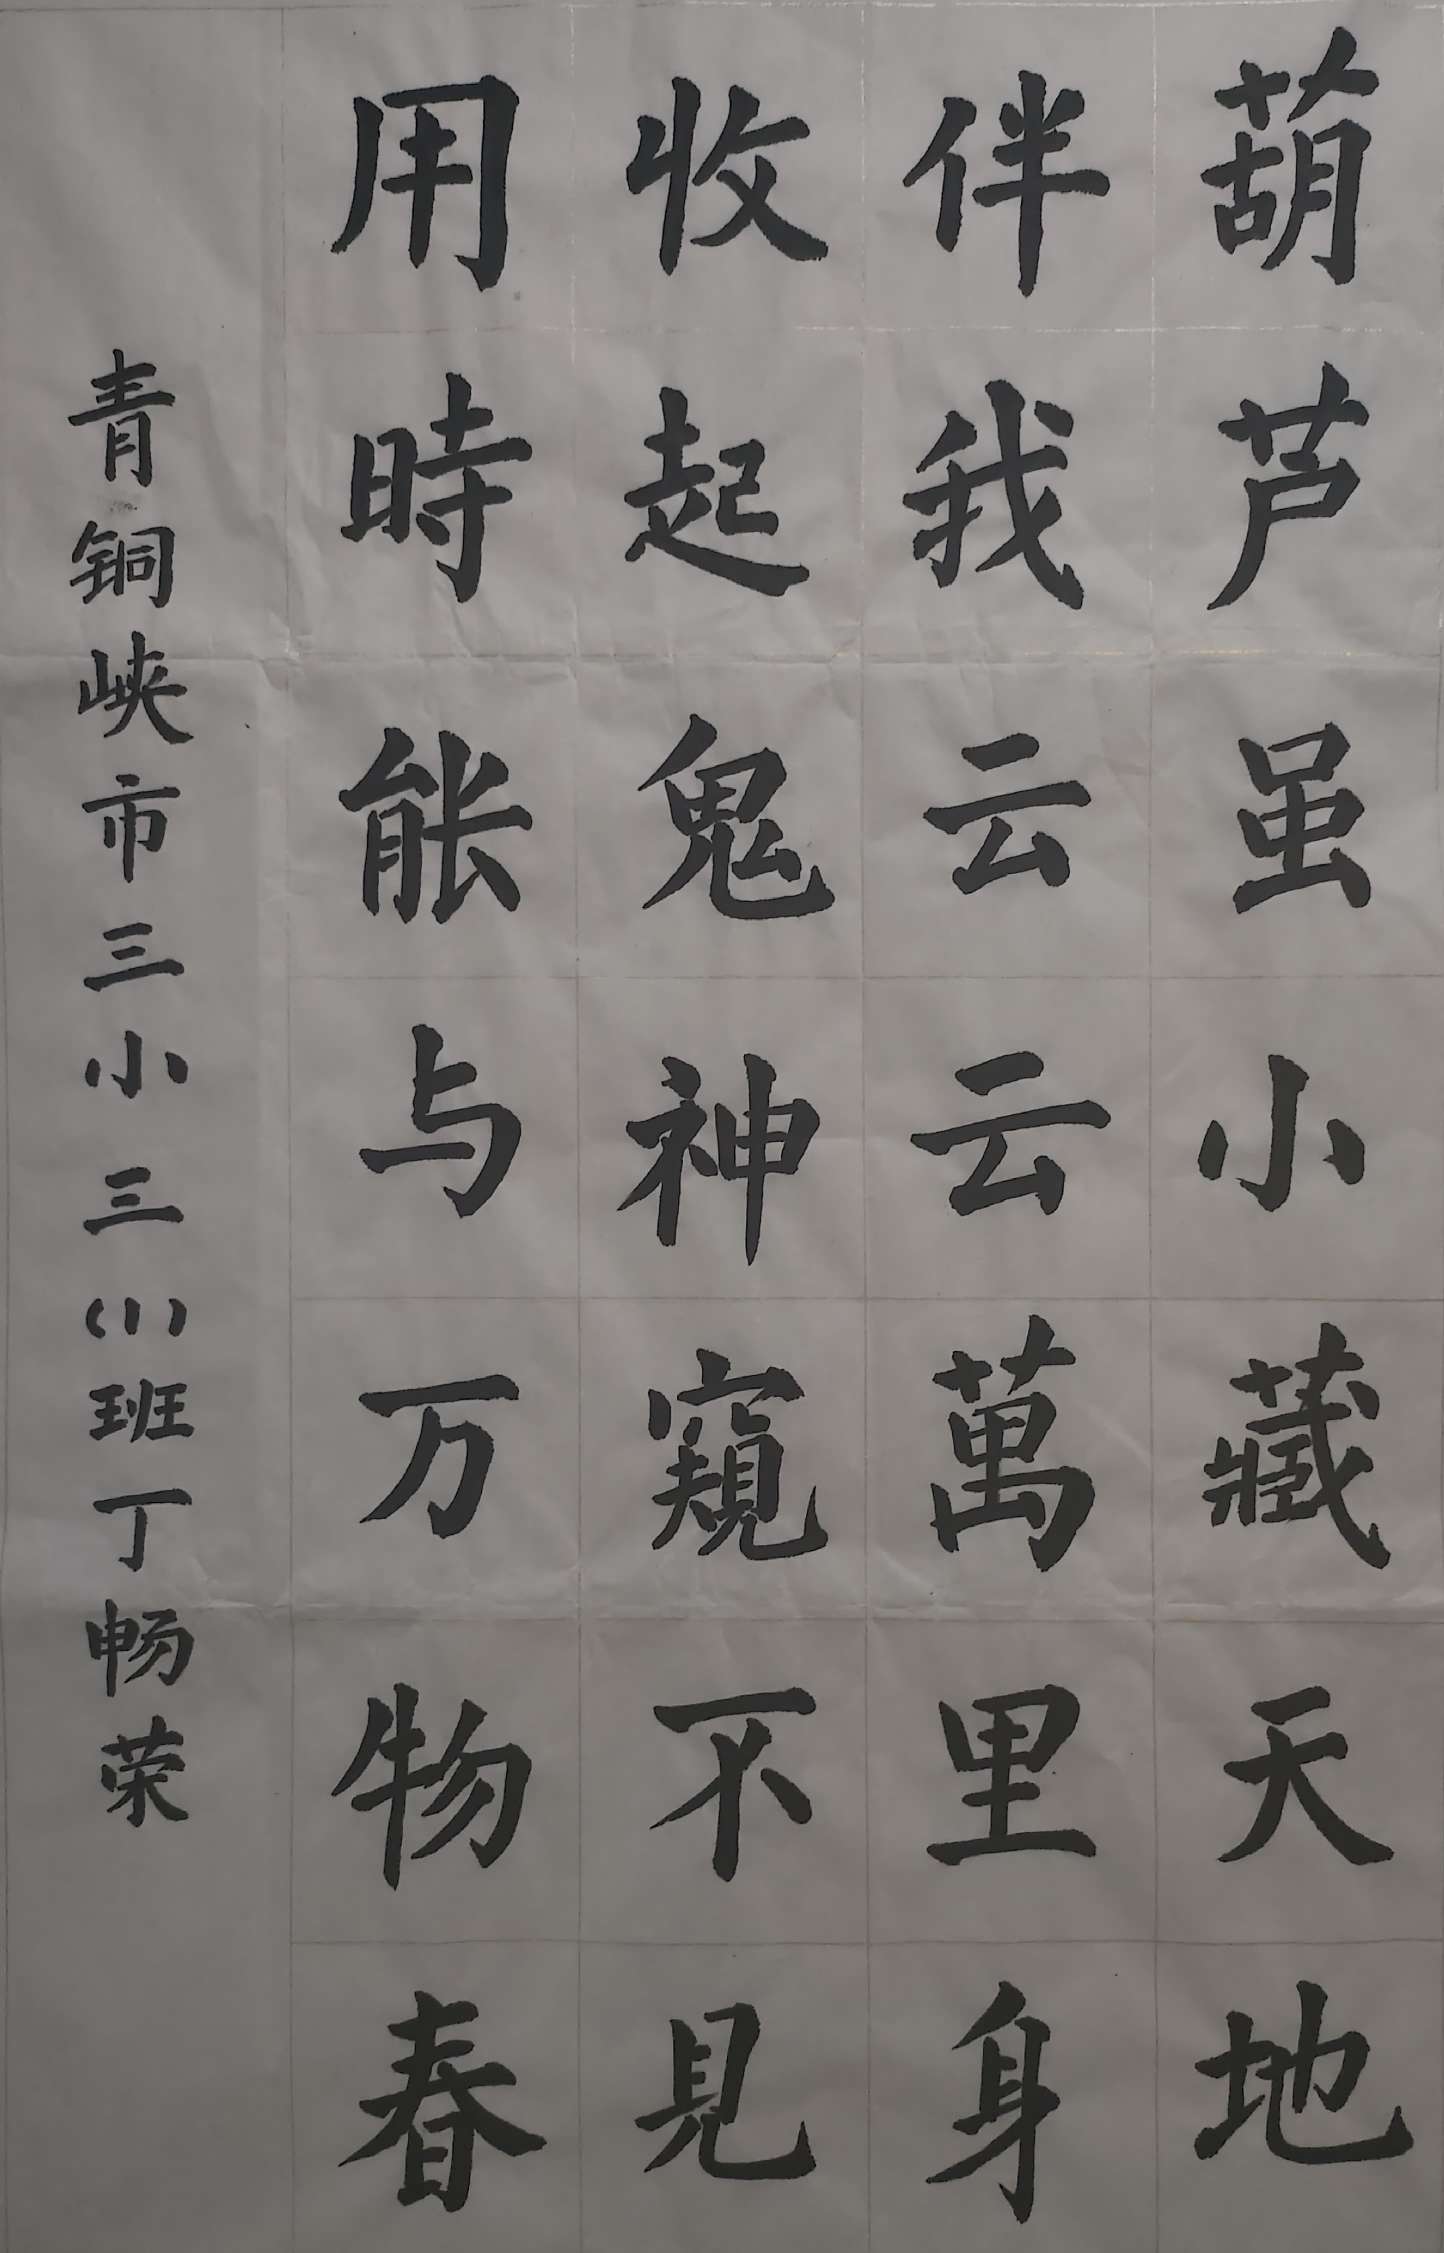 葫芦虽小藏天地
伴我云云萬里身
收起鬼神窺不見
用時能与万物春
青铜峡市三小三(1)班丁畅荣